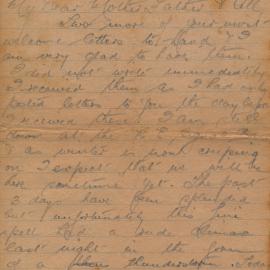 My Dear Mother Father & all
Two more of your most
welcome letters to hand & I
am very glad to have them.
I did not write immediately
I received them as I had only
posted letters to you the day before
I received these. I am still
down at the
& as winter is now coming
on I expect that we will be
here sometime yet. The past
3 days have been splendid
but unfortunately this fine
spell had a rude
last night in the form
of a thunderstorm.